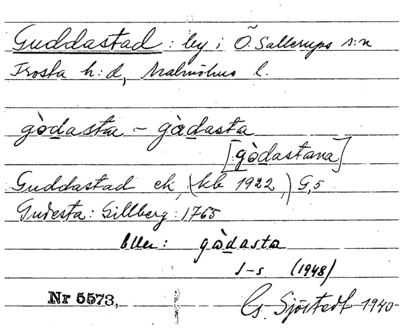 Guddastad : by i Ö. Sallerups s:n
Frosta h:d, Malmöhus l.
gòdasta – gàdasta
[gòdastana]
Guddastad ek, (kb 1922,) G,5
Gudesta: Gillberg: 1765
Eller: gòdasta
J-s. (1948)
Nr 5573,
G. Sjöstedt 1940